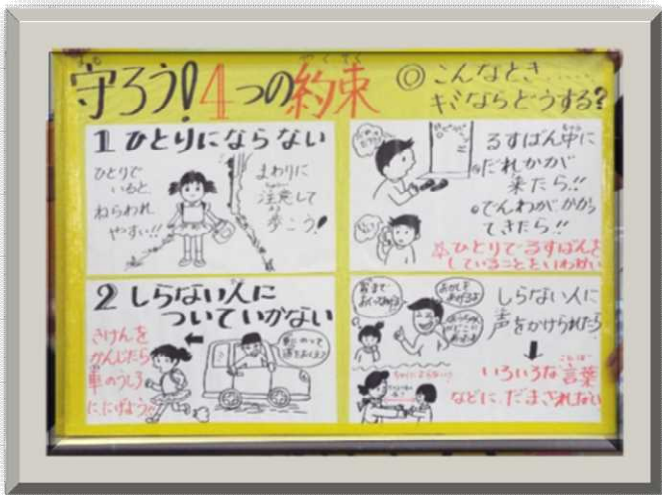 守ろう!4つの約束
◎こんなとき.....
キミならどうする?
1 ひとりにならない
ひとりで
いると
ねらわれ
やすい!!
まわりに
注意して
歩こう!
るすばん中に
だれかが
来たら!!
でんわがかかっ
てきたら!!
ひとりでるすばんを
していることをいわない
2 しらない人に
ついていかない
きけんを
かんじたら
車のうしろ
ににげよう
車にのって
しらない人に
声をかけられたら
いろいろな言葉
などに、だまされない